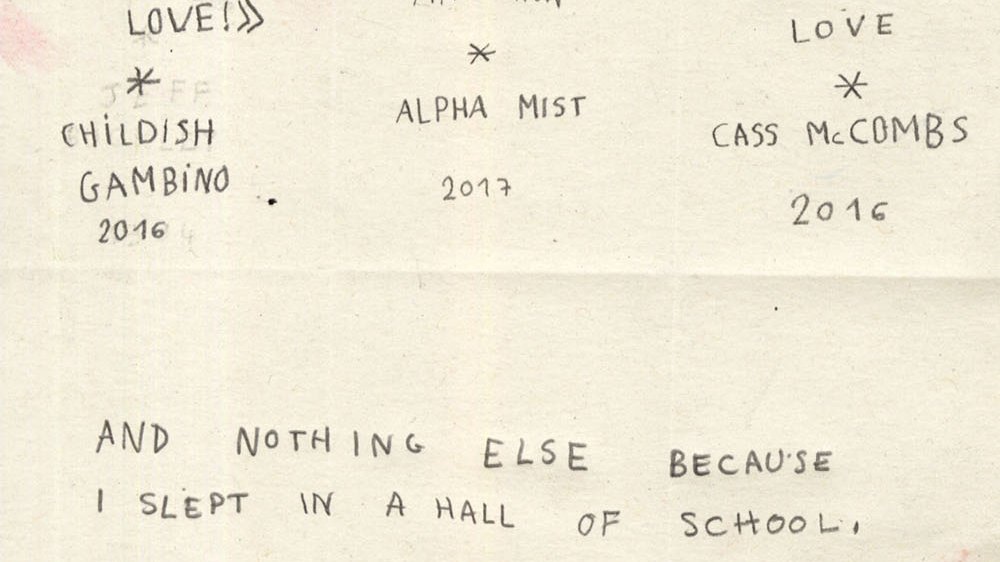 LOVE!»
*
CHILDISH
GAMBINO
2016
*
ALPHA MIST
2017
LOVE
*
CASS McCOMBS
2016
AND NOTHING ELSE BECAUSE
I SLEPT IN A HALL OF SCHOOL.